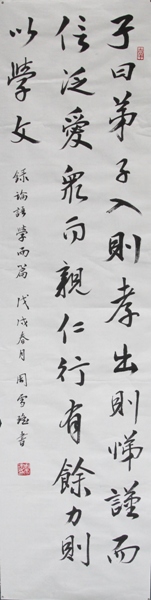 子曰弟子入則孝出則悌謹而
信泛愛眾而親仁行有餘力則
以學文
錄論語學而篇 戊戌春月 周雪瑤書